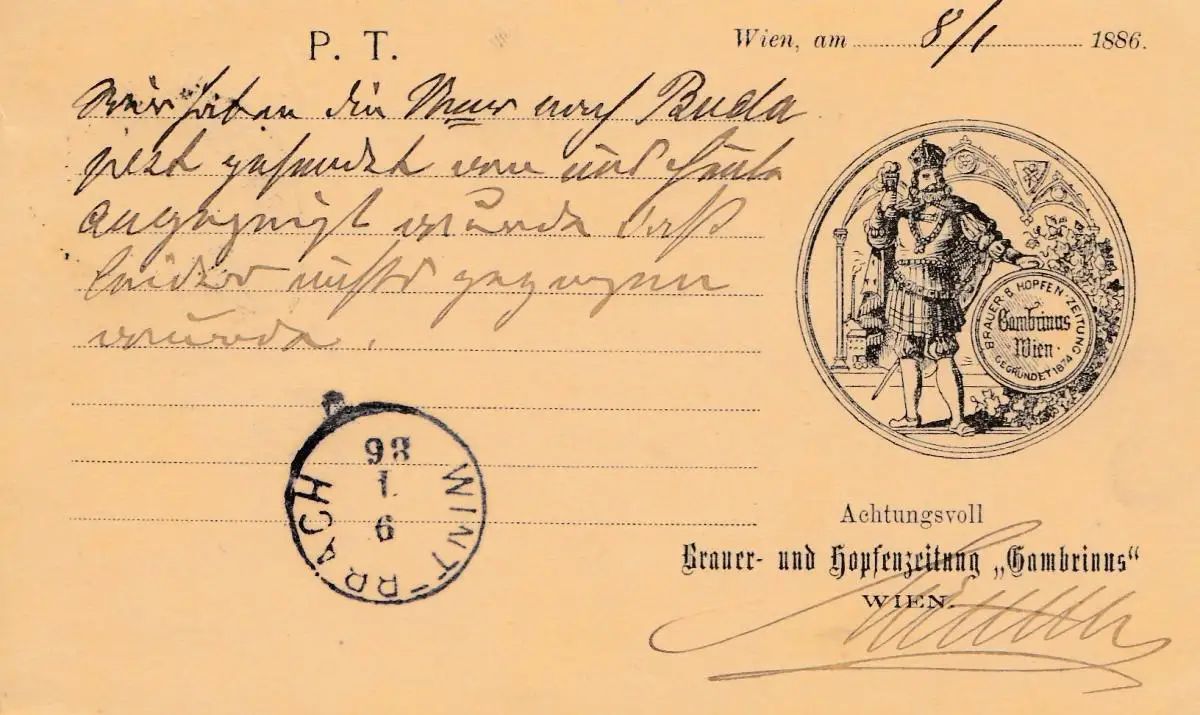 P. T.
Wien, am 8/1 1886.
Wir haben die nach Buda
pest gesendet von uns heute
angezeigt wurde daß
leider nichts gezogen
wurde.
BRAUER & HOPFEN-ZEITUNG
Gambrinus
Wien
GEGRÜNDET 1874
WINTERBACH
86
1
9
Achtungsvoll
Brauer- und Hopfenzeitung „Gambrinus“
WIEN.